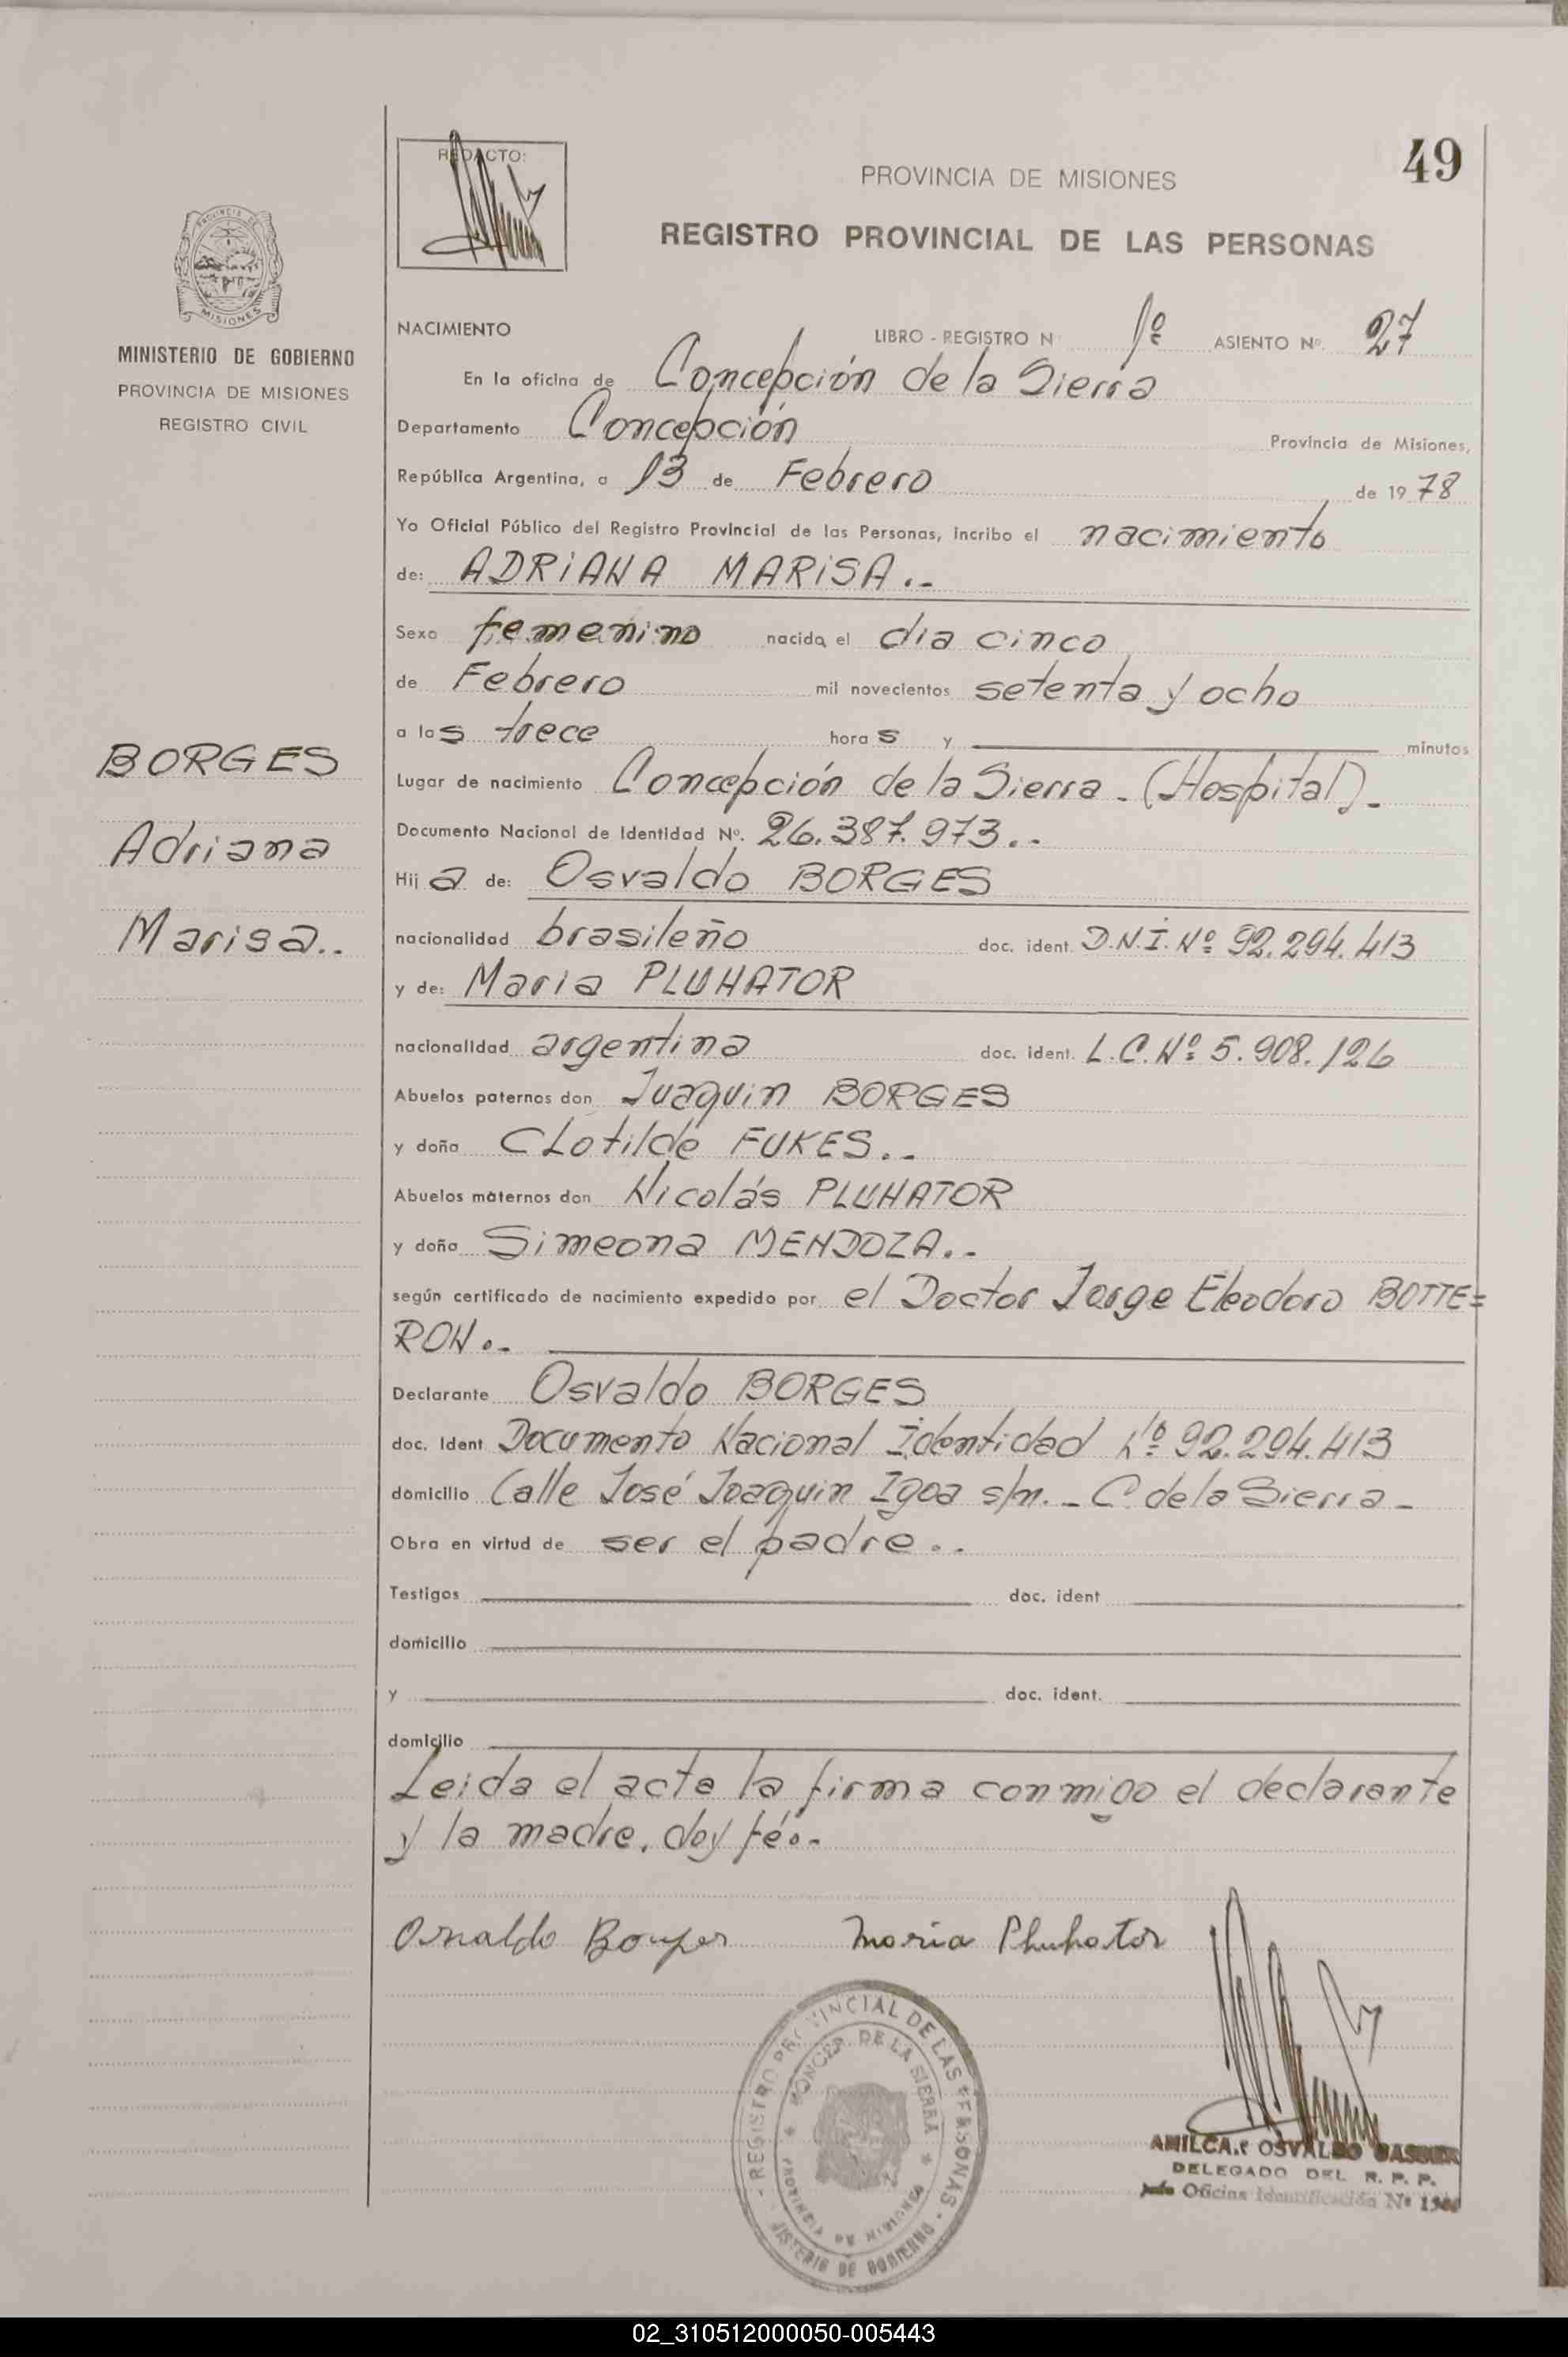 49
REDACTO:
PROVINCIA DE MISIONES
REGISTRO PROVINCIAL DE LAS PERSONAS
MISIONES
MINISTERIO DE GOBIERNO
PROVINCIA DE MISIONES
REGISTRO CIVIL
BORGES
Adriana
Marisa..
NACIMIENTO LIBRO - REGISTRO N 1º ASIENTO Nº 27
En la oficina de Concepción de la Sierra
Departamento Concepción Provincia de Misiones,
República Argentina, a 13 de Febrero de 1978
Yo Oficial Público del Registro Provincial de las Personas, incribo el nacimiento
de: ADRIANA MARISA.-
Sexo femenino nacida el dia cinco
de Febrero mil novecientos setenta y ocho
a las trece horas y minutos
Lugar de nacimiento Concepción de la Sierra - (Hospital).-
Documento Nacional de Identidad Nº. 26.387.973.-
Hija de: Osvaldo BORGES
nacionalidad brasileño doc. ident. D.N.I. Nº 92.294.413
y de: Maria PLUHATOR
nacionalidad argentina doc. ident. L.C. Nº 5.908.126
Abuelos paternos don Juaquin BORGES
y doña CLotilde FUKES.-
Abuelos maternos don Nicolás PLUHATOR
y doña Simeona MENDOZA.-
según certificado de nacimiento expedido por el Doctor Jorge Eleodoro BOTTE=
RON.-
Declarante Osvaldo BORGES
doc. Ident Documento Nacional Identidad Nº 92.294.413
domicilio Calle José Joaquin Igoa s/n. - C. de la Sierra -
Obra en virtud de ser el padre..
Testigos doc. ident
domicilio
y doc. ident.
domicilio
Leida el acta la firma conmigo el declarante
y la madre, doy fé.-
Osvaldo Borges Maria Pluhator
REGISTRO PROVINCIAL DE LAS PERSONAS
CONCEP. DE LA SIERRA
PROVINCIA DE MISIONES
MINISTERIO DE GOBIERNO
AMILCAR OSVALDO
DELEGADO DEL R. P. P.
Oficina Identificación Nº
02_310512000050-005443